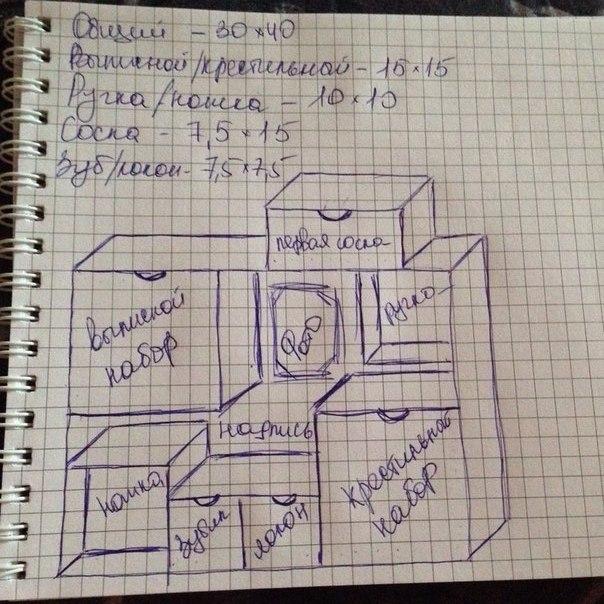 Общий - 30×40
Выписной/крестильной - 15×15
Ручка/ножка - 10×10
Соска - 7,5×15
Зуб/локон - 7,5×7,5
первая соска
Выписной
набор
Фото
ручка
надпись
ножка
зубик
локон
крестильной
набор